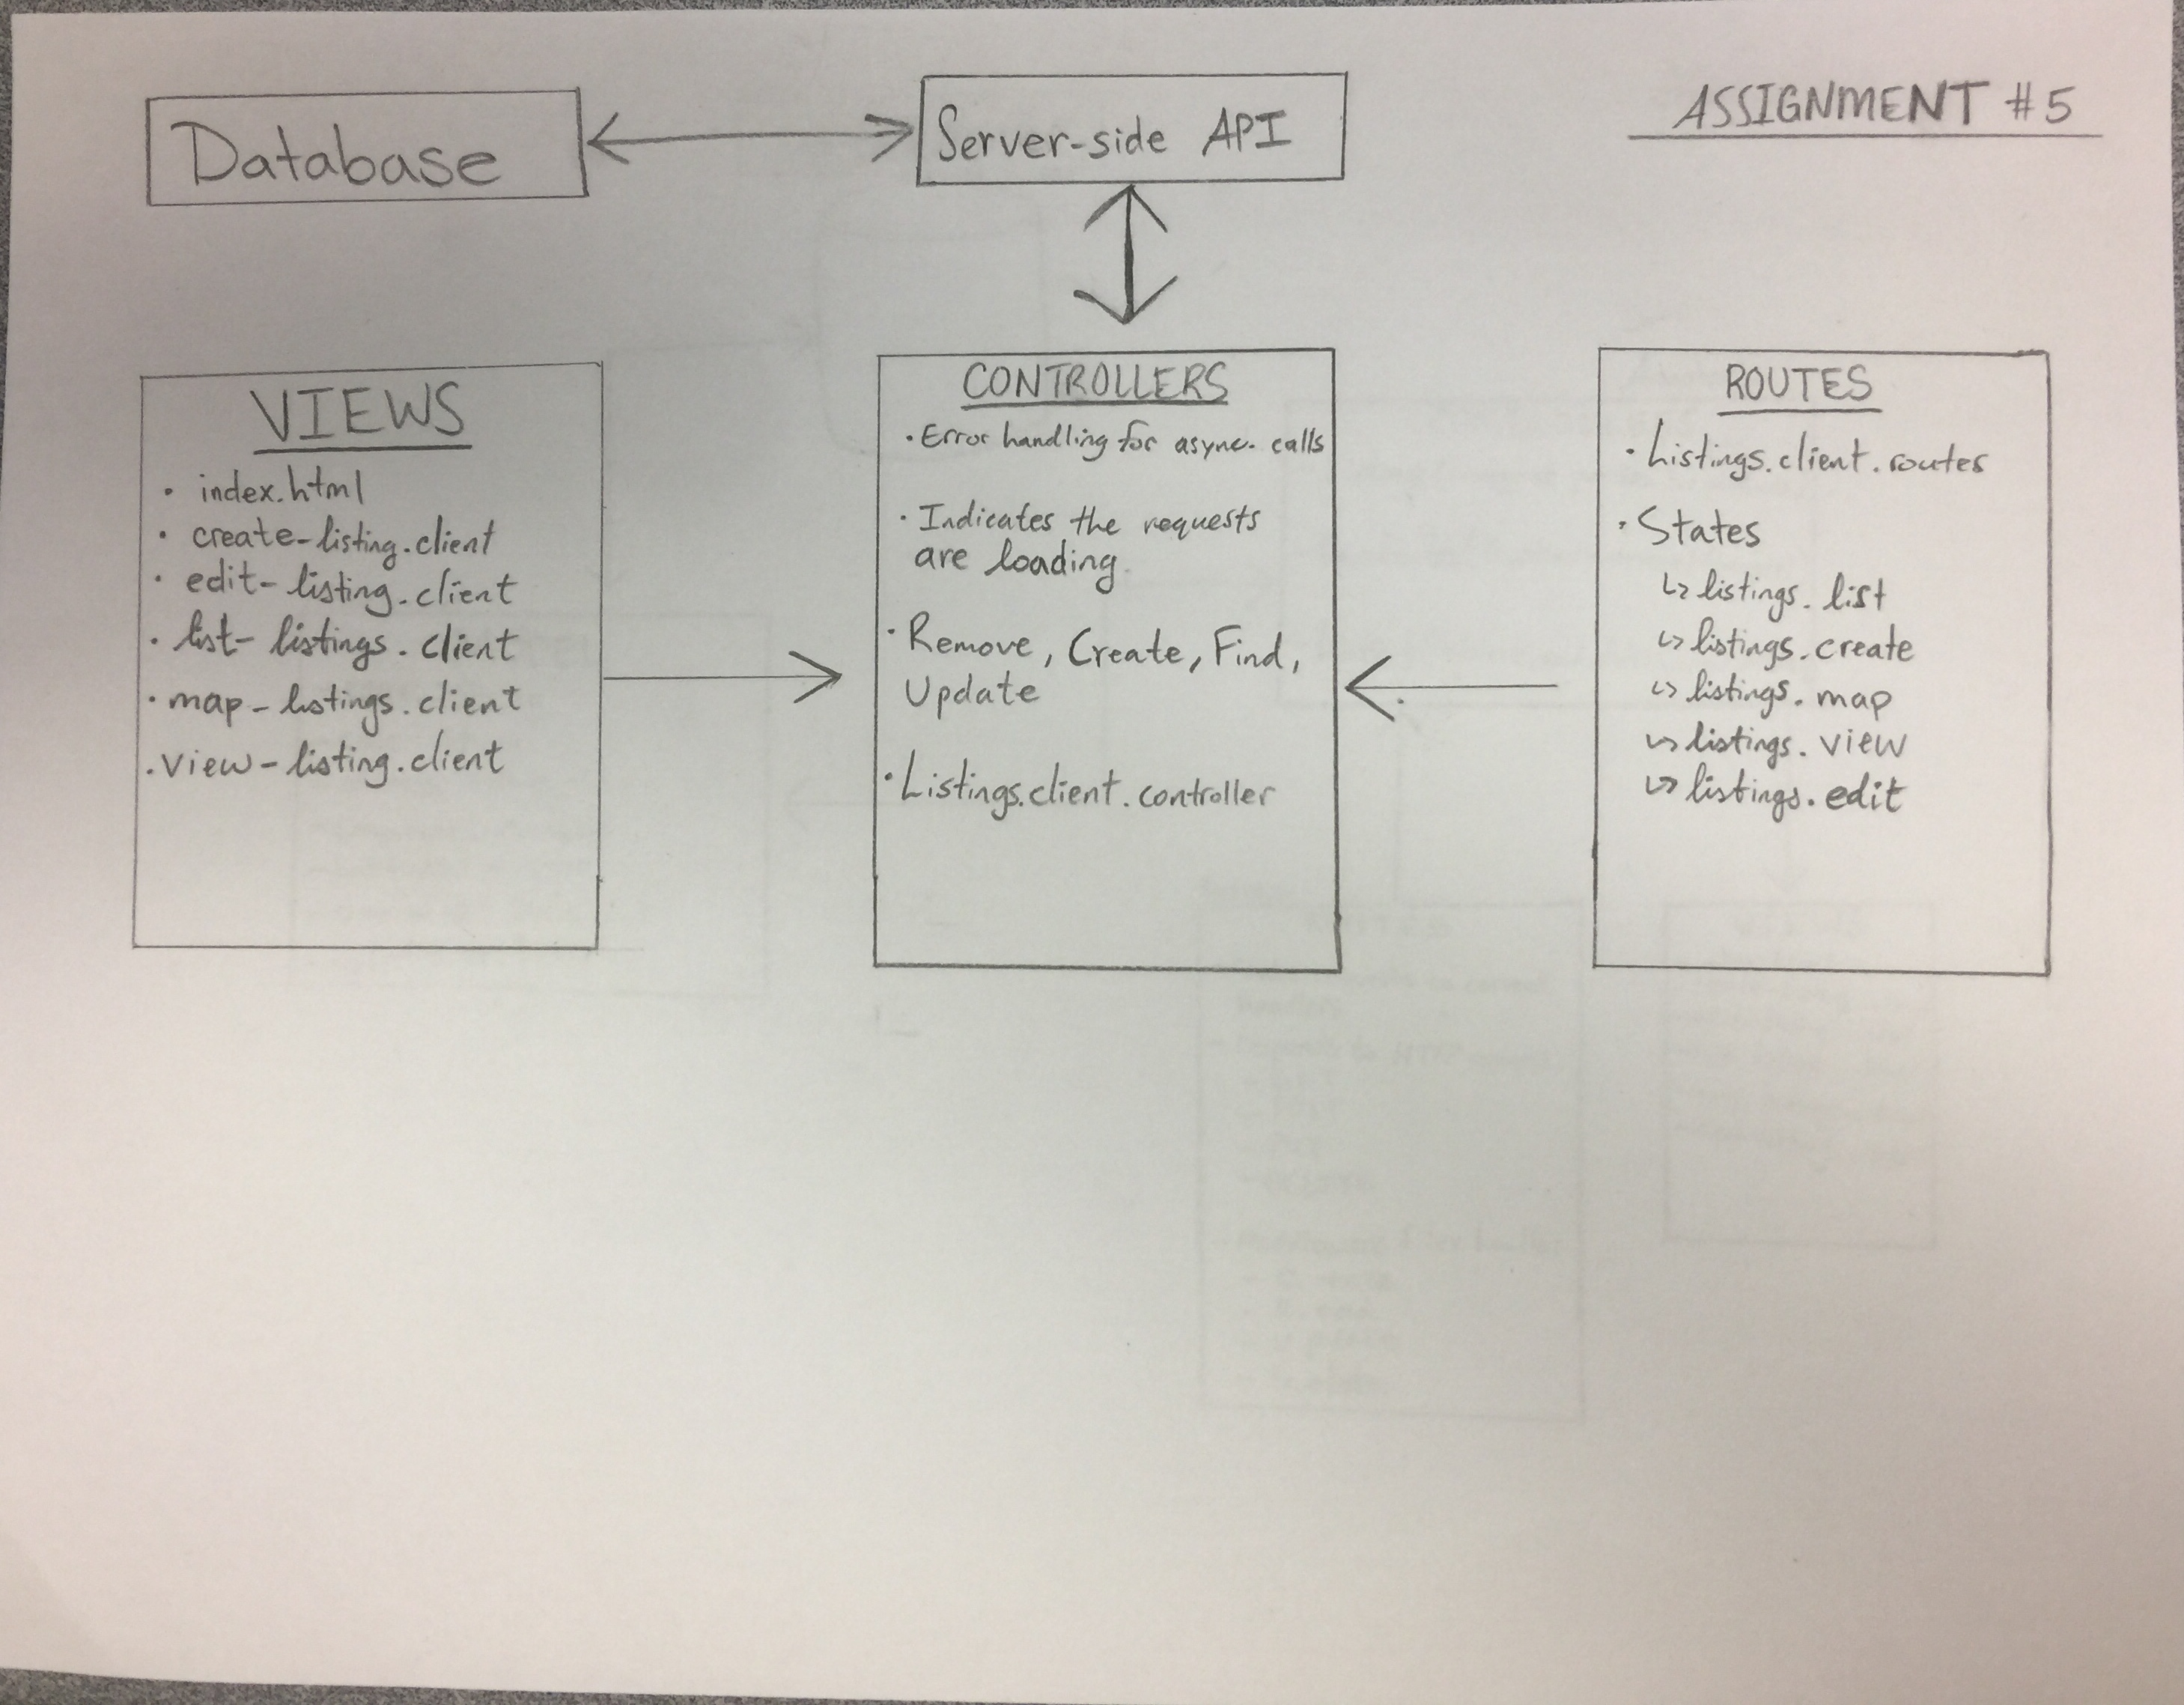 ASSIGNMENT #5
Database
Server-side API
VIEWS
• index.html
• create-listing.client
• edit-listing.client
• list-listings.client
• map-listings.client
• view-listing.client
CONTROLLERS
• Error handling for async. calls
• Indicates the requests
are loading
• Remove, Create, Find,
Update
• Listings.client.controller
ROUTES
• Listings.client.routes
• States
↳ listings.list
↳ listings.create
↳ listings.map
↳ listings.view
↳ listings.edit